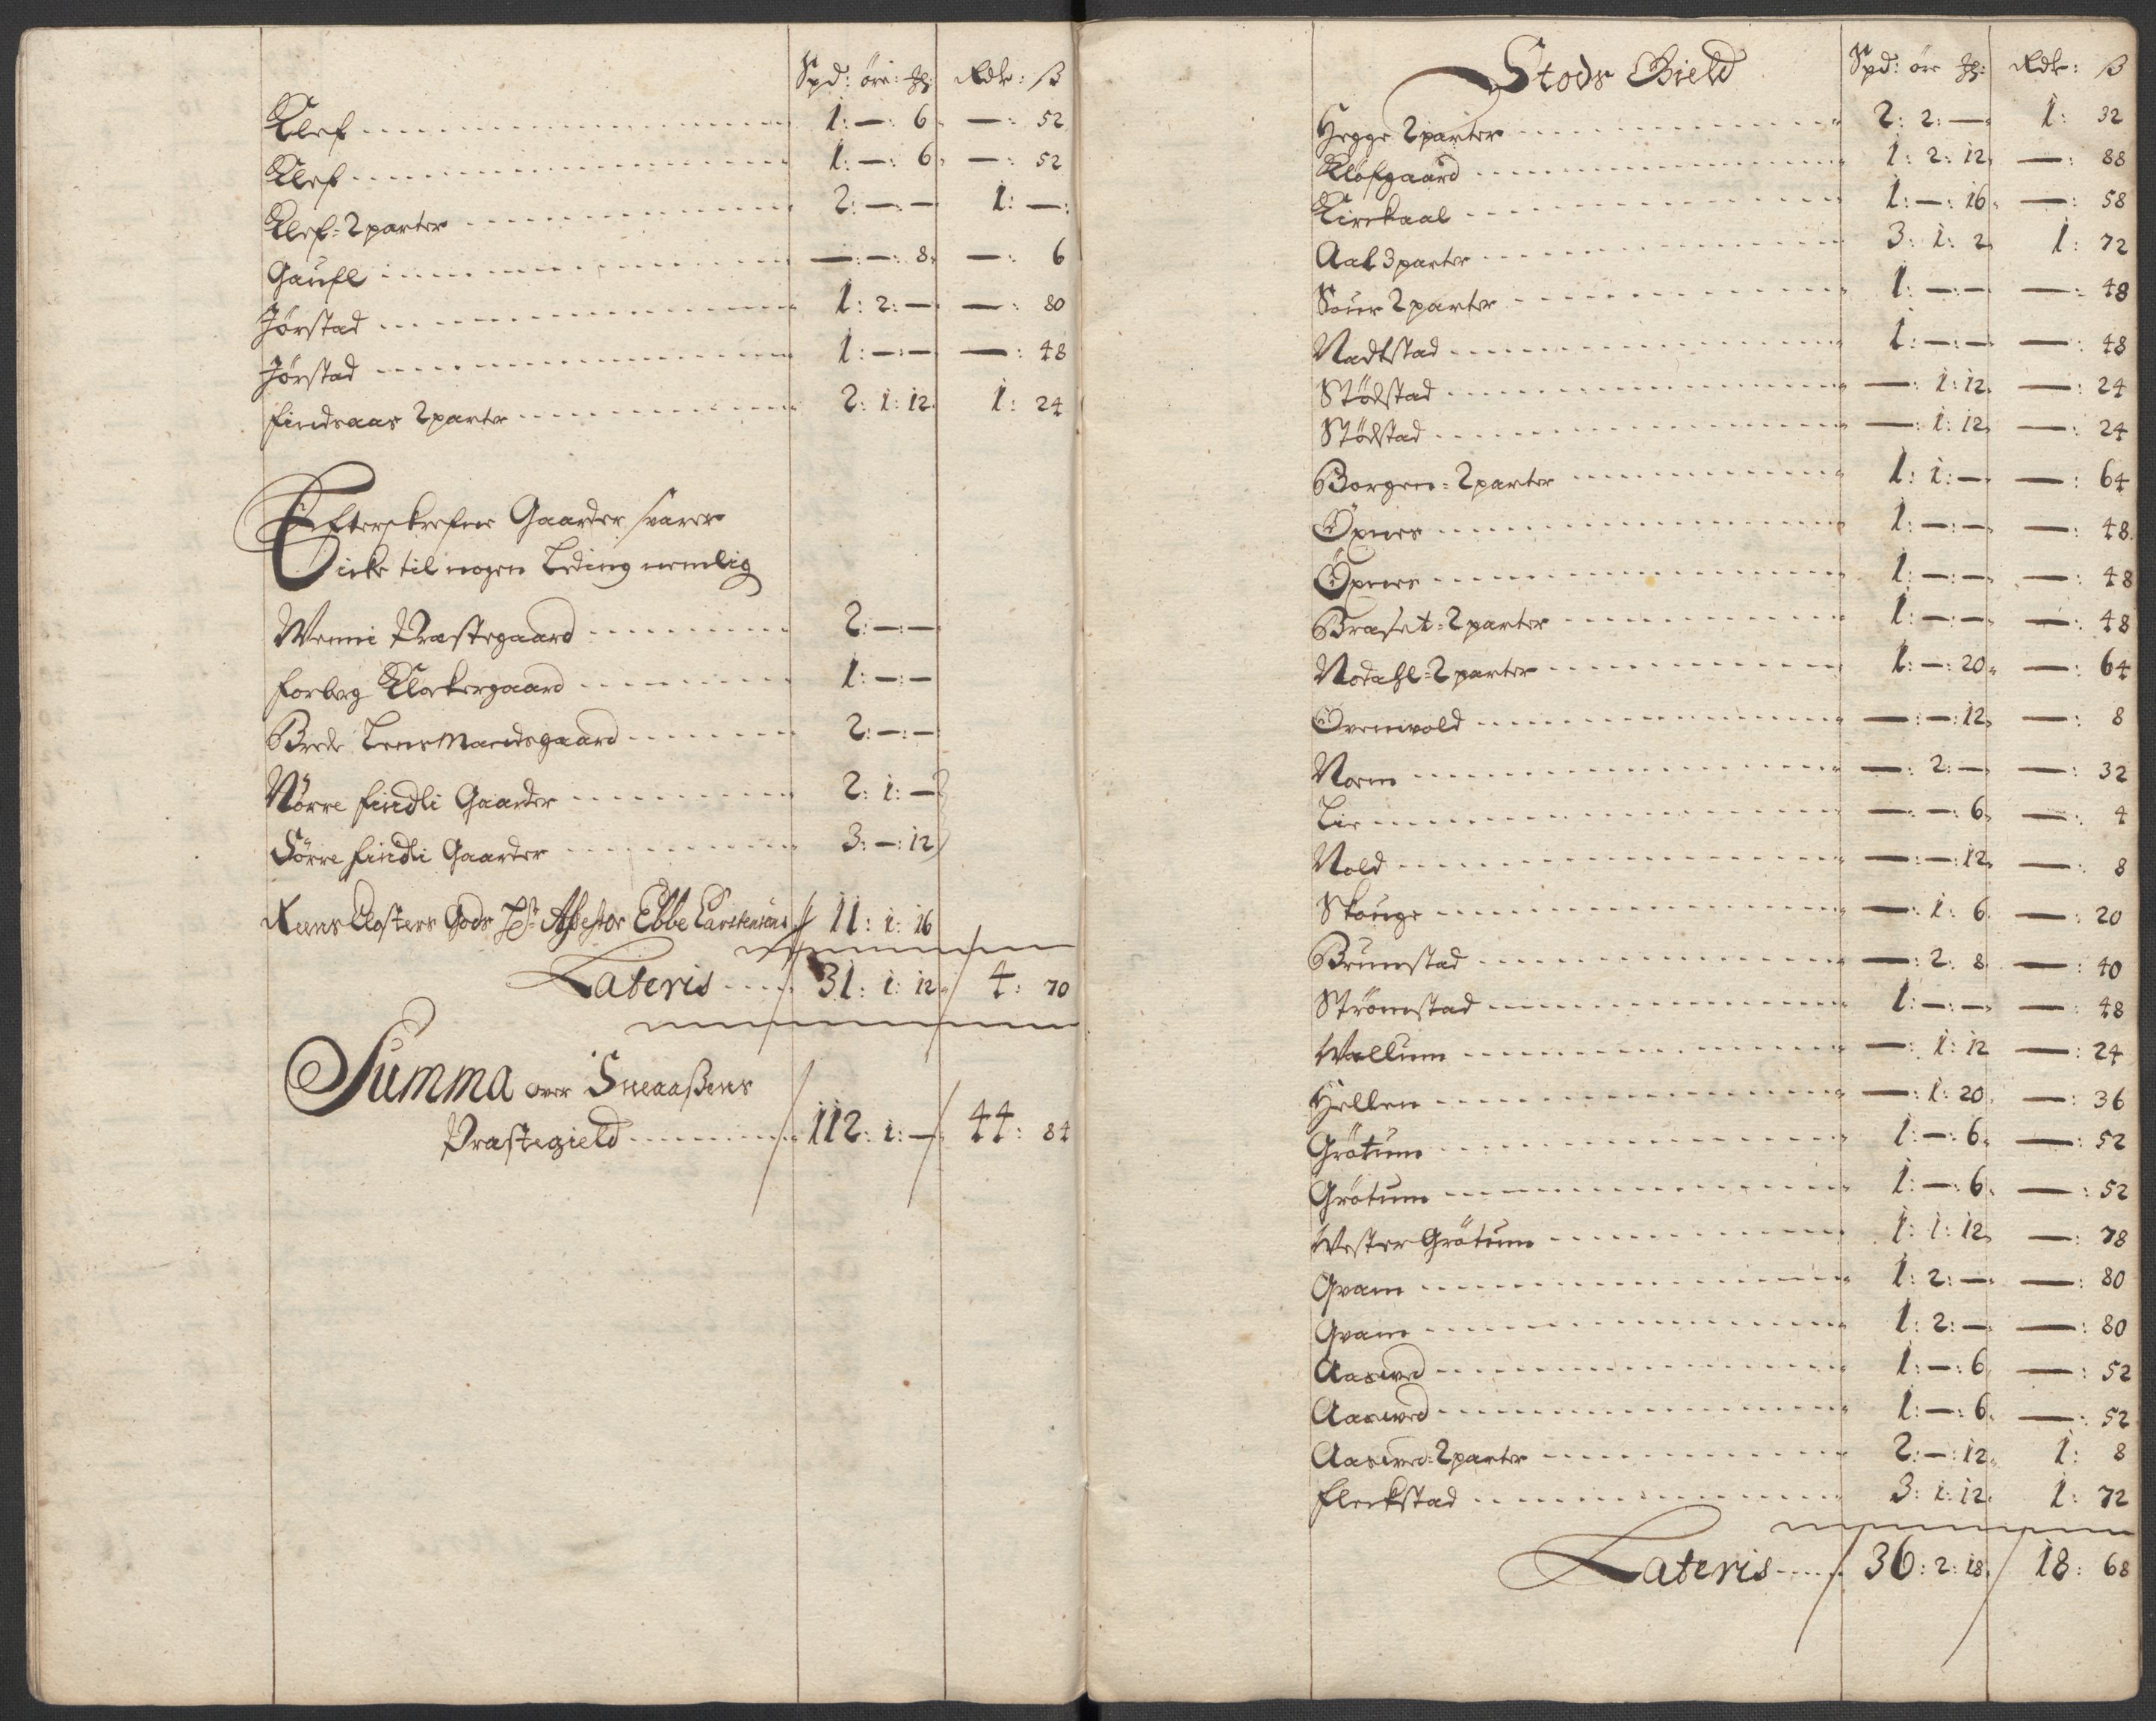 Spd: öre: ℔: Rdr: ß
Klef 1: —: 6: —: 52
Klef 1: —: 6: —: 52
Klef: 2 parter 2: —: — 1: —:
Gaufl —: —: 8: —: 6
Jørstad 1: 2: — —: 80
Jørstad 1: —: — —: 48
Findsaas 2 parter 2: 1: 12: 1: 24
Efterskrefne Gaarder svarer
icke til nogen Leding nemlig
Wenni Præstegaard 2: —: —
Forberg Klockergaard 1: —: —
Brede Lensmandsgaard 2: —: —
Nørre Findli Gaarder 2: 1: —
Sørre Findli Gaarder 3: —: 12
Reens Closters Gods Assessor Ebbe Carstensens 11: 1: 16
Lateris 31: 1: 12: 4: 70
Summa over Sneaaßens
Præstegield 112: 1: —: 44: 84
Stods Gield Spd: öre ℔: Rdr: ß
Hegge 2 parter 2: 2: —: 1: 32
Kløfgaard 1: 2: 12: —: 88
Kirckaal 1: —: 16: —: 58
Aal 3 parter 3: 1: 2 1: 72
Souer 2 parter 1: —: — —: 48
Nadtstad 1: —: — —: 48
Stödstad —: 1: 12: —: 24
Stödstad —: 1: 12: —: 24
Borgen: 2 parter 1: 1: — —: 64
Öxnes 1: —: — —: 48
Öxnes 1: —: — —: 48
Braset: 2 parter 1: —: — —: 48
Nodahl: 2 parter 1: —: 20: —: 64
Ovenvold —: —: 12: —: 8
Norm —: 2: — —: 32
Lie —: —: 6: —: 4
Vold —: —: 12: —: 8
Skouge —: 1: 6 —: 20
Brumstad —: 2: 8 —: 40
Strömstad 1: —: — —: 48
Wallum —: 1: 12 —: 24
Hellem —: 1: 20: —: 36
Grötum 1: —: 6: —: 52
Grötum 1: —: 6: —: 52
Wester Grötum 1: 1: 12: —: 78
Qvam 1: 2: —: —: 80
Qvam 1: 2: —: —: 80
Aasved 1: —: 6 —: 52
Aasved 1: —: 6: —: 52
Aasved: 2 parter 2: —: 12: 1: 8
Fleckstad 3: 1: 12: 1: 72
Lateris 36: 2: 18: 18: 68